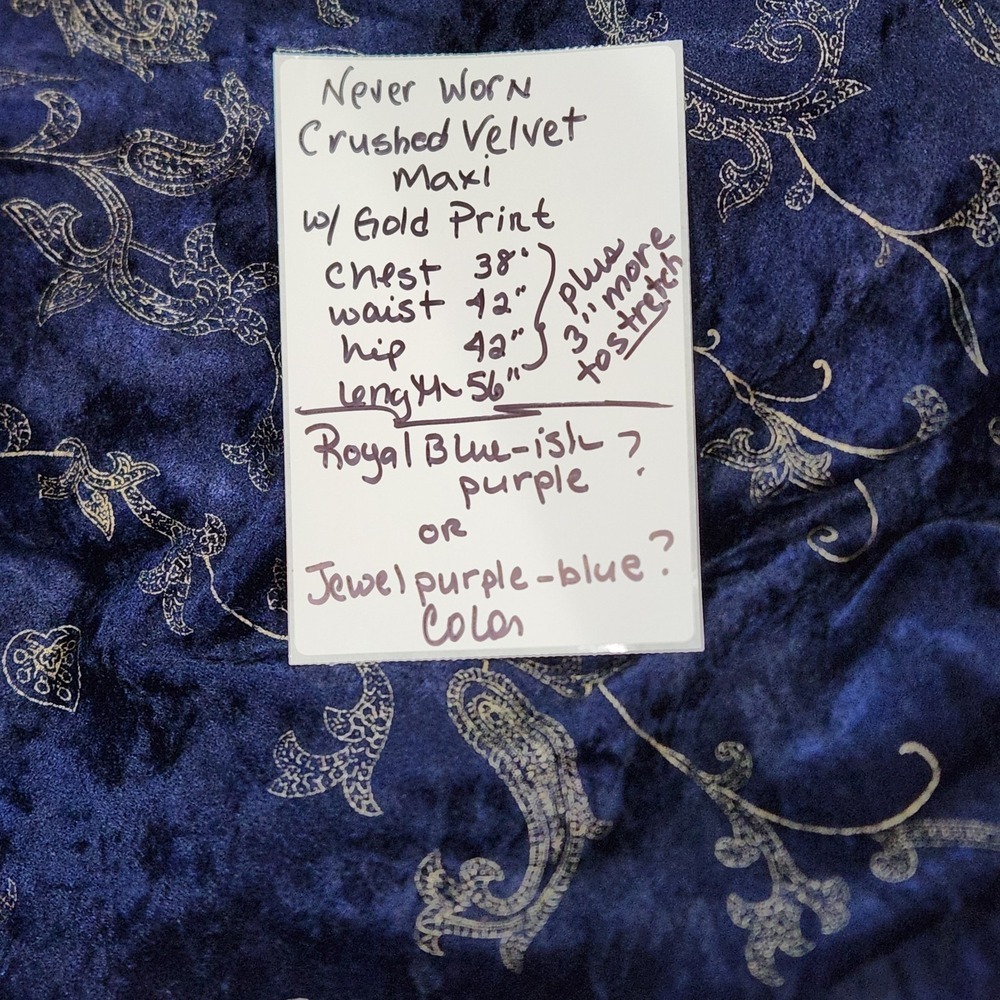 Never Worn
Crushed Velvet
Maxi
w/ Gold Print
Chest 38"
waist 42"
hip 42"
plus
3" more
to stretch
Length 56"
Royal Blue-ish
purple ?
OR
Jewel purple-blue?
Color